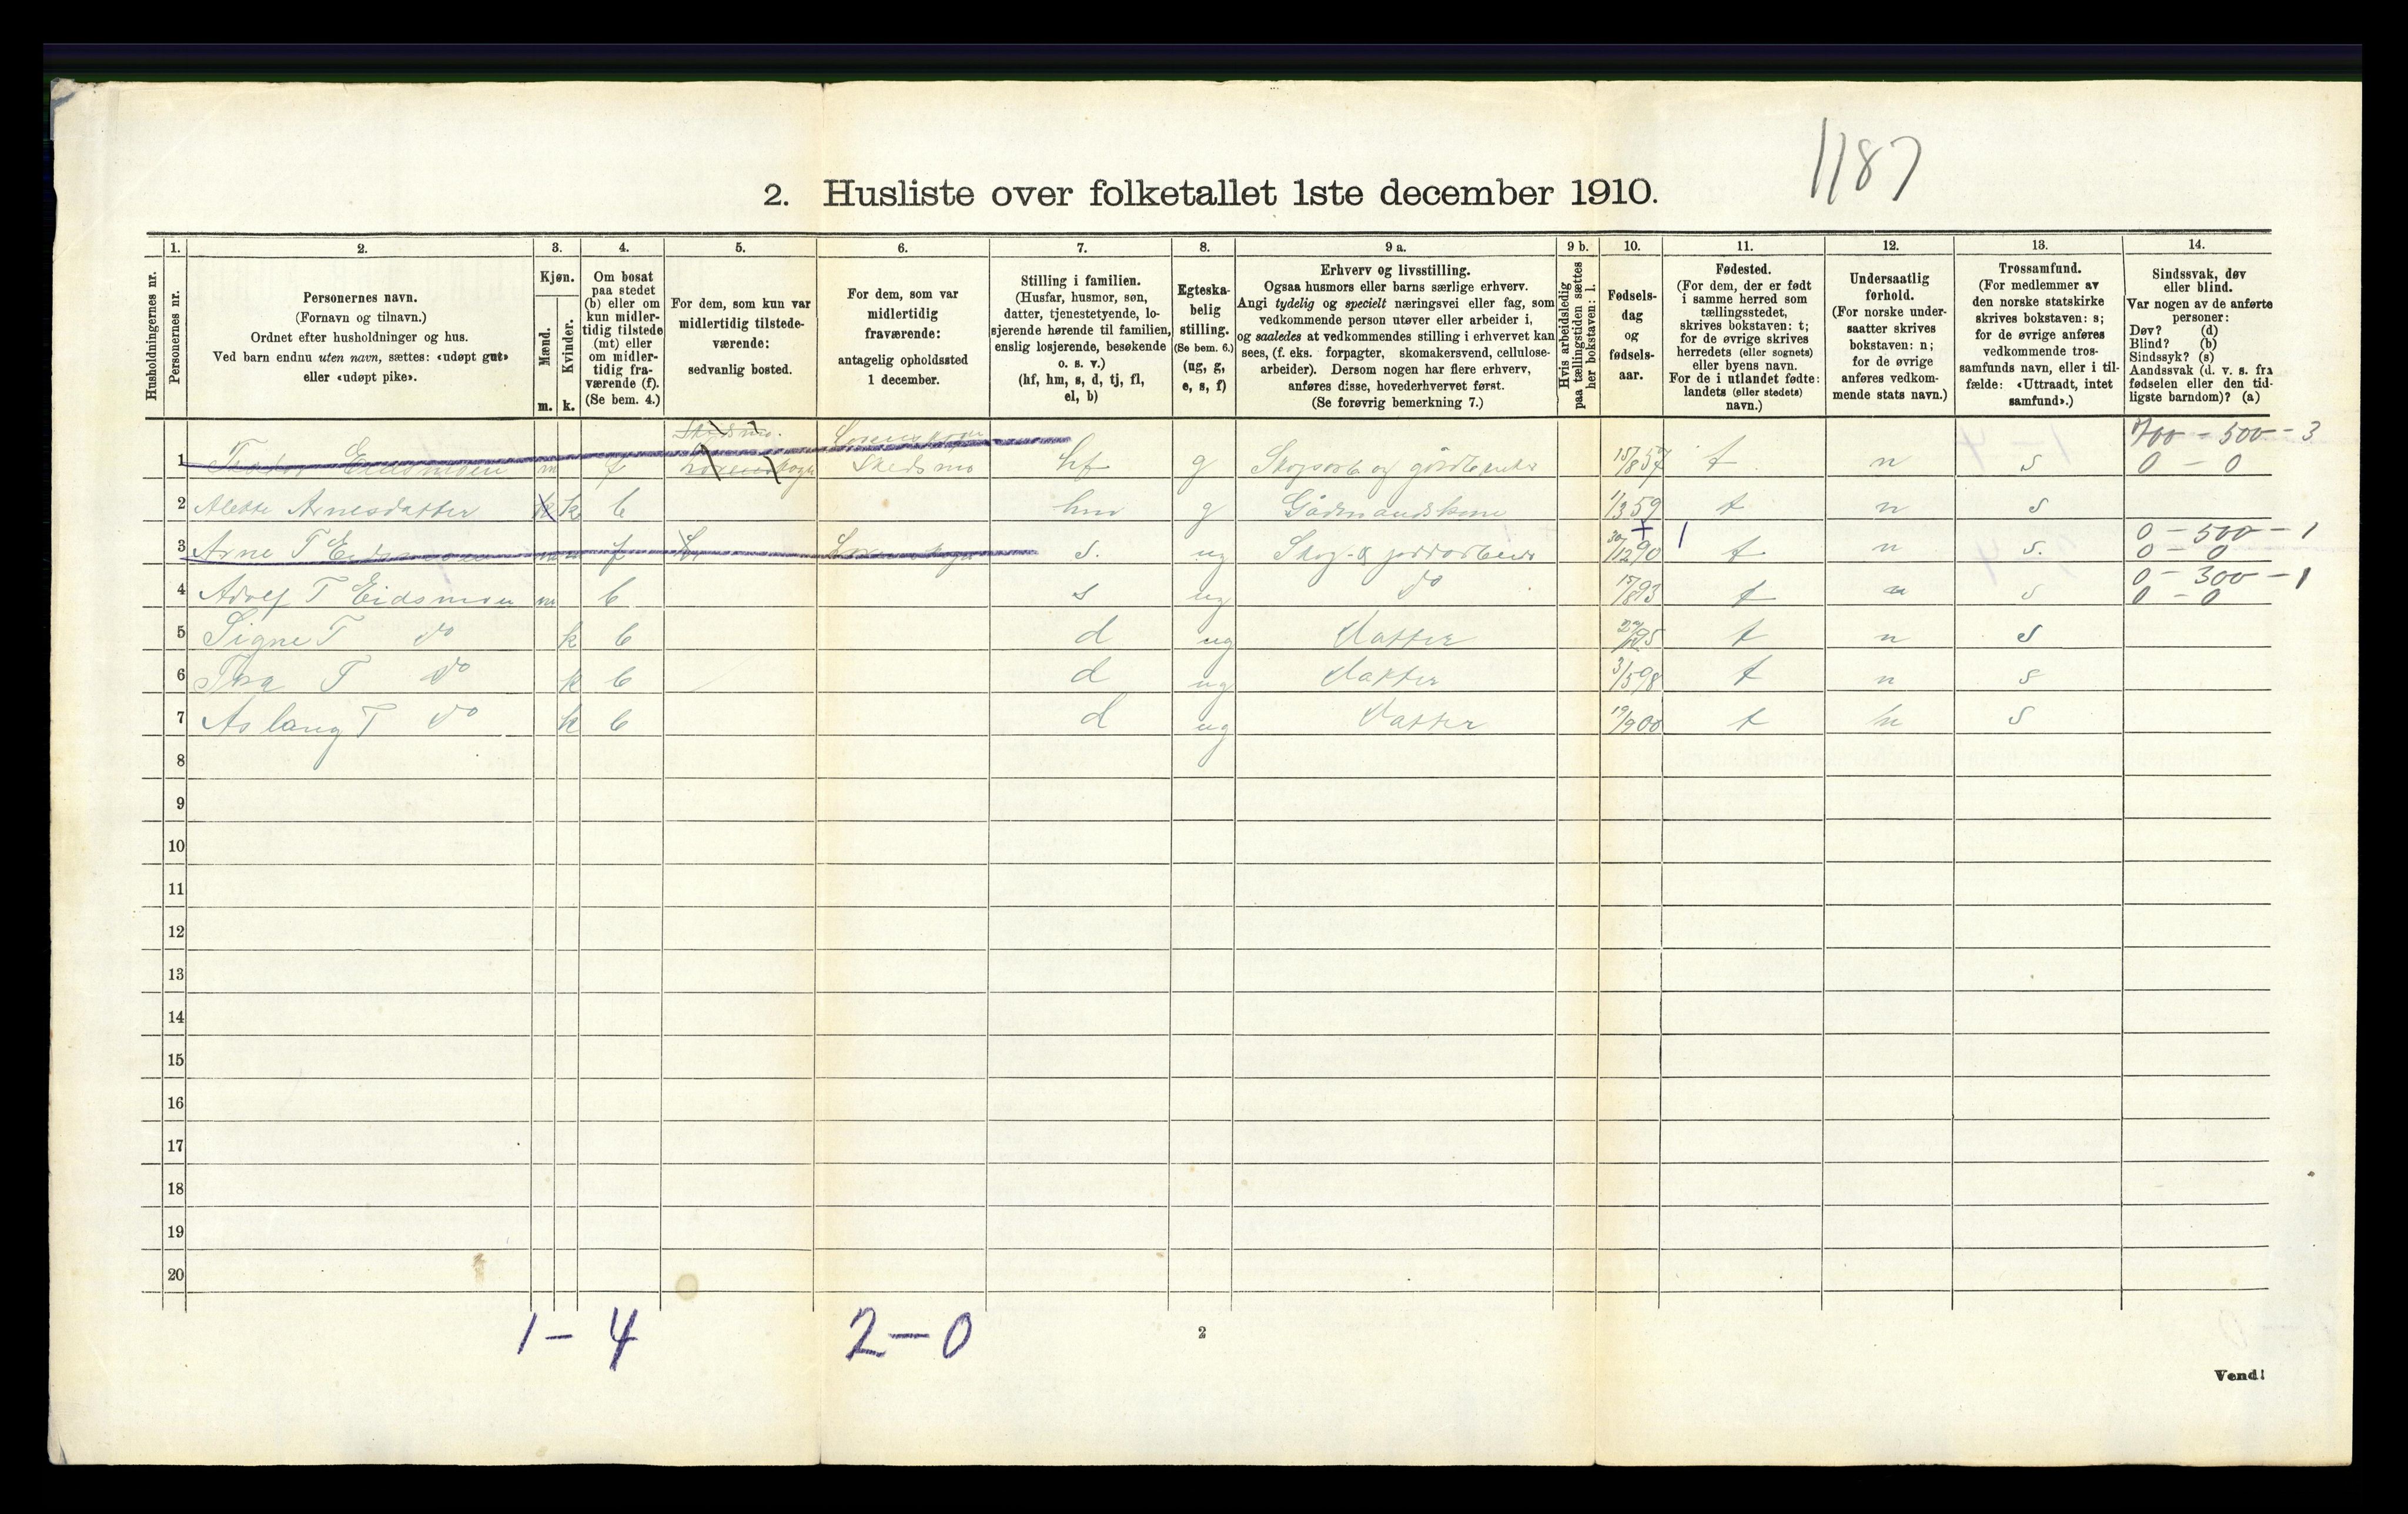 1187
2. Husliste over folketallet 1ste december 1910.
1. 2. 3. 4. 5. 6. 7. 8. 9 a. 9 b. 10. 11. 12. 13. 14.
Husholdningernes nr.
Personernes nr.
Personernes navn.
(Fornavn og tilnavn.)
Ordnet efter husholdninger og hus.
Ved barn endnu uten navn, sættes: «udøpt gut»
eller «udøpt pike».
Kjøn.
Mænd.
Kvinder.
m. k.
Om bosat
paa stedet
(b) eller om
kun midler-
tidig tilstede
(mt) eller
om midler-
tidig fra-
værende (f).
(Se bem. 4.)
For dem, som kun var
midlertidig tilstede-
værende:
sedvanlig bosted.
For dem, som var
midlertidig
fraværende:
antagelig opholdssted
1 december.
Stilling i familien.
(Husfar, husmor, søn,
datter, tjenestetyende, lo-
sjerende hørende til familien,
enslig losjerende, besøkende
o. s. v.)
(hf, hm, s, d, tj, fl,
el, b)
Egteska-
belig
stilling.
(Se bem. 6.)
(ug, g,
e, s, f)
Erhverv og livsstilling.
Ogsaa husmors eller barns særlige erhverv.
Angi tydelig og specielt næringsvei eller fag, som
vedkommende person utøver eller arbeider i,
og saaledes at vedkommendes stilling i erhvervet kan
sees, (f. eks. forpagter, skomakersvend, cellulose-
arbeider). Dersom nogen har flere erhverv,
anføres disse, hovederhvervet først.
(Se forøvrig bemerkning 7.)
Hvis arbeidsledig
paa tællingstiden sættes
her bokstaven: l.
Fødsels-
dag
og
fødsels-
aar.
Fødested.
(For dem, der er født
i samme herred som
tællingsstedet,
skrives bokstaven: t;
for de øvrige skrives
herredets (eller sognets)
eller byens navn.
For de i utlandet fødte:
landets (eller stedets)
navn.)
Undersaatlig
forhold.
(For norske under-
saatter skrives
bokstaven: n;
for de øvrige
anføres vedkom-
mende stats navn.)
Trossamfund.
(For medlemmer av
den norske statskirke
skrives bokstaven: s;
for de øvrige anføres
vedkommende tros-
samfunds navn, eller i til-
fælde: «Uttraadt, intet
samfund».)
Sindssvak, døv
eller blind.
Var nogen av de anførte
personer:
Døv? (d)
Blind? (b)
Sindssyk? (s)
Aandssvak (d. v. s. fra
fødselen eller den tid-
ligste barndom)? (a)
Skedsmo. 700 - 500 - 3
1 m f Skedsmo hf g 15/8 57 t n s 0 - 0
2 Alette Arnesdatter k k b hm g Gådmandskone 11/3 59 t n s
0 - 500 - 1
3 Arne T Eidsmoen m f s. ug 30/12 90 t n s. 0 - 0
0 - 300 - 1
4 Adolf T Eidsmoen m b s ug do 15/8 93 t n s 0 - 0
5 Signe T do k b d ug Datter 95 t n s
6 T do k b d ug Datter 3/5 98 t n s
7 Aslaug T do k b d ug Datter 19/9 00 t n s
8
9
10
11
12
13
14
15
16
17
18
19
20
1 - 4 2 - 0
2
Vend!